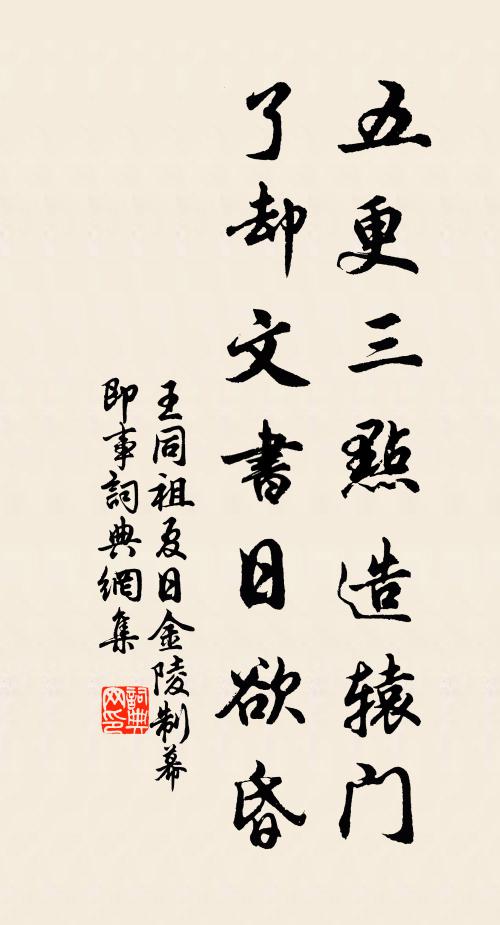 五更三點造辕门
了却文書日欲昏
王同祖夏日金陵制幕
即事詞典網集
詞典网印